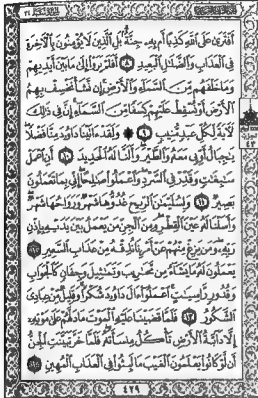 أَفْتَرَىٰ عَلَى اللَّهِ كَذِبًا أَم بِهِ جِنَّةٌ بَلِ الَّذِينَ لَا يُؤْمِنُونَ بِالْآخِرَةِ
فِي الْعَذَابِ وَالضَّلَالِ الْبَعِيدِ ٨ أَفَلَمْ يَرَوْا إِلَىٰ مَا بَيْنَ أَيْدِيهِمْ
وَمَا خَلْفَهُم مِّنَ السَّمَاءِ وَالْأَرْضِ إِن نَّشَأْ نَخْسِفْ بِهِمُ
الْأَرْضَ أَوْ نُسْقِطْ عَلَيْهِمْ كِسَفًا مِّنَ السَّمَاءِ إِنَّ فِي ذَٰلِكَ
لَآيَةً لِّكُلِّ عَبْدٍ مُّنِيبٍ ٩ وَلَقَدْ آتَيْنَا دَاوُودَ مِنَّا فَضْلًا
يَا جِبَالُ أَوِّبِي مَعَهُ وَالطَّيْرَ وَأَلَنَّا لَهُ الْحَدِيدَ ١٠ أَنِ اعْمَلْ
سَابِغَاتٍ وَقَدِّرْ فِي السَّرْدِ وَاعْمَلُوا صَالِحًا إِنِّي بِمَا تَعْمَلُونَ
بَصِيرٌ ١١ وَلِسُلَيْمَانَ الرِّيحَ غُدُوُّهَا شَهْرٌ وَرَوَاحُهَا شَهْرٌ
وَأَسَلْنَا لَهُ عَيْنَ الْقِطْرِ وَمِنَ الْجِنِّ مَن يَعْمَلُ بَيْنَ يَدَيْهِ بِإِذْنِ
رَبِّهِ وَمَن يَزِغْ مِنْهُمْ عَنْ أَمْرِنَا نُذِقْهُ مِنْ عَذَابِ السَّعِيرِ ١٢
يَعْمَلُونَ لَهُ مَا يَشَاءُ مِن مَّحَارِيبَ وَتَمَاثِيلَ وَجِفَانٍ كَالْجَوَابِ
وَقُدُورٍ رَّاسِيَاتٍ اعْمَلُوا آلَ دَاوُودَ شُكْرًا وَقَلِيلٌ مِّنْ عِبَادِيَ
الشَّكُورُ ١٣ فَلَمَّا قَضَيْنَا عَلَيْهِ الْمَوْتَ مَا دَلَّهُمْ عَلَىٰ مَوْتِهِ
إِلَّا دَابَّةُ الْأَرْضِ تَأْكُلُ مِنسَأَتَهُ فَلَمَّا خَرَّ تَبَيَّنَتِ الْجِنُّ
أَن لَّوْ كَانُوا يَعْلَمُونَ الْغَيْبَ مَا لَبِثُوا فِي الْعَذَابِ الْمُهِينِ ١٤
٤٢٩